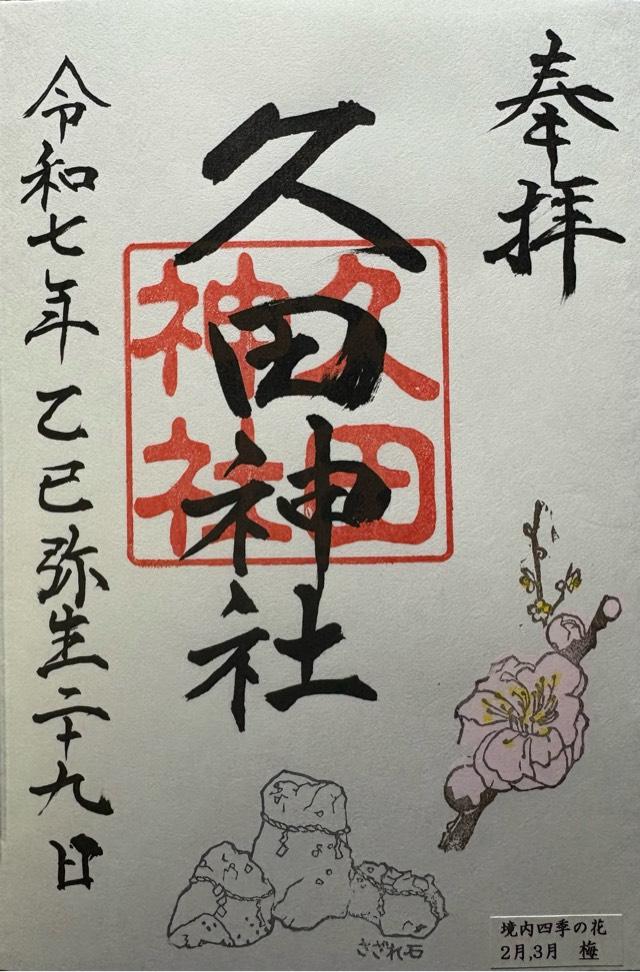 奉拝
久田神社
久田
神社
令和七年乙巳弥生二十九日
さざれ石
境内四季の花
2月,3月 梅